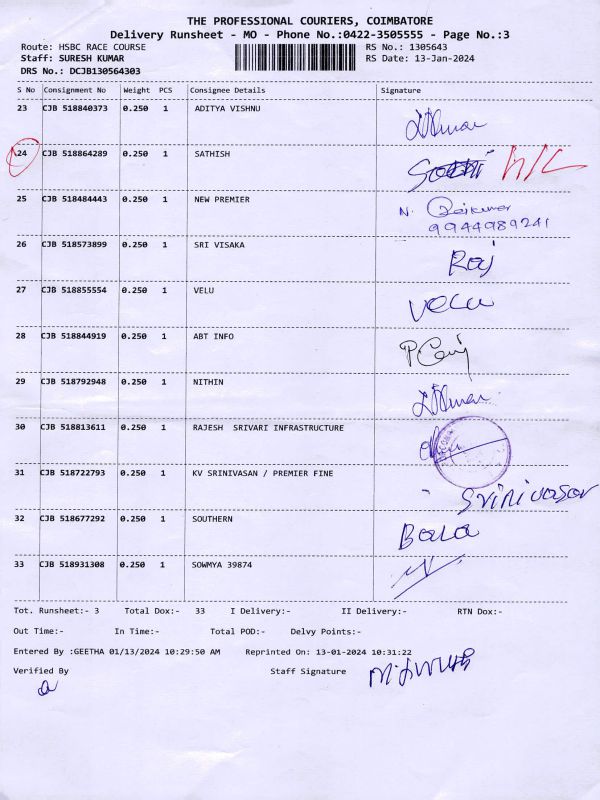 THE PROFESSIONAL COURIERS, COIMBATORE
Delivery Runsheet - MO - Phone No.:0422-3505555 - Page No.:3
Route: HSBC RACE COURSE RS No.: 1305643
Staff: SURESH KUMAR RS Date: 13-Jan-2024
DRS No.: DCJB130564303
S No Consignment No Weight PCS Consignee Details Signature
23 CJB 518840373 0.250 1 ADITYA VISHNU
24 CJB 518864289 0.250 1 SATHISH
25 CJB 518484443 0.250 1 NEW PREMIER N. Rajkumar
9944989241
26 CJB 518573899 0.250 1 SRI VISAKA Raj
27 CJB 518855554 0.250 1 VELU Velu
28 CJB 518844919 0.250 1 ABT INFO
29 CJB 518792948 0.250 1 NITHIN
30 CJB 518813611 0.250 1 RAJESH SRIVARI INFRASTRUCTURE
31 CJB 518722793 0.250 1 KV SRINIVASAN / PREMIER FINE Srinivasan
32 CJB 518677292 0.250 1 SOUTHERN Bala
33 CJB 518931308 0.250 1 SOWMYA 39874
Tot. Runsheet:- 3 Total Dox:- 33 I Delivery:- II Delivery:- RTN Dox:-
Out Time:- In Time:- Total POD:- Delvy Points:-
Entered By :GEETHA 01/13/2024 10:29:50 AM Reprinted On: 13-01-2024 10:31:22
Verified By Staff Signature